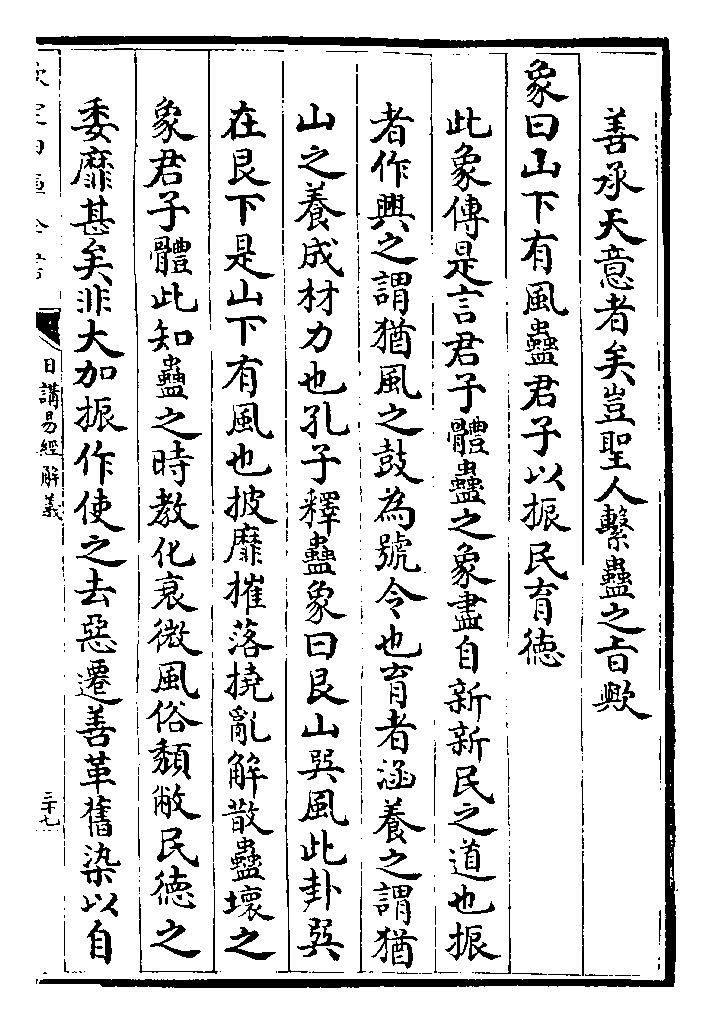 善承天意者矣豈聖人繫蠱之㫖歟
象曰山下有風蠱君子以振民育徳
此象傳是言君子體蠱之象盡自新新民之道也振
者作興之謂猶風之鼓為號令也育者涵養之謂猶
山之養成材力也孔子釋蠱象曰艮山㢲風此卦㢲
在艮下是山下有風也披靡摧落撓亂解散蠱壞之
象君子體此知蠱之時教化衰微風俗頽敝民徳之
委靡甚矣非大加振作使之去惡遷善革舊染以自
日講易經解義
三十七